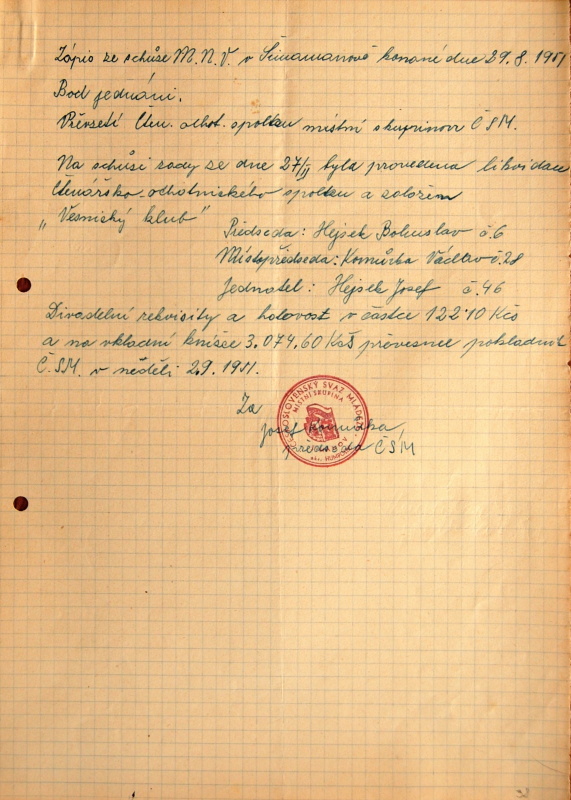 Zápis ze schůse M.N.V. v konané dne 29.8.1951
Bod jednáni.
Převzetí Čten. ochot. spolku místní skupinou ČSM.
Na schůsi rady ze dne 27/II byla provedena likvidace
Čtenářsko-ochotnického spolku a založen
„Vesnický klub"
Předseda: Hejsek Bohuslav č.6
Místopředseda: Komůrka Václav č.28
Jednatel: Hejsek Josef č.46
Divadelní rekvisity a hotovost v částce 122·10 Kčs
a na vkladní knížce 3.074,60 Kčs převesme pokladník
Č.SM. v neděli 2.9.1951.
Za
Josef Komůrka,
předseda ČSM
ČESKOSLOVENSKÝ SVAZ MLÁDEŽE
MÍSTNÍ SKUPINA